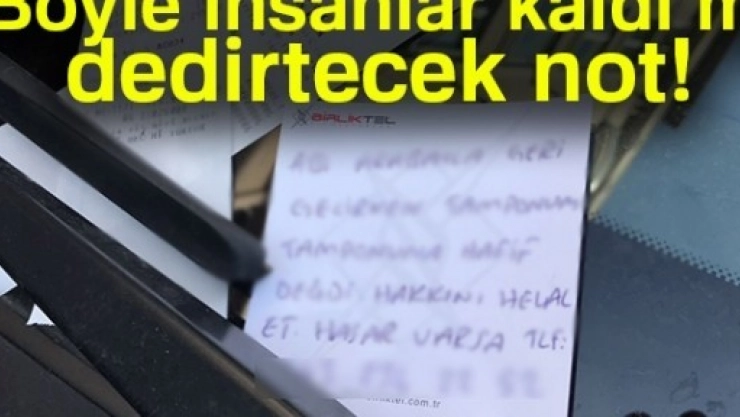 Böyle insanlar kaldı m
dedirtecek not!
BİRLİKTEL
ABİ ARABAYLA GERİ
GELİRKEN TAMPONUM
TAMPONUNA HAFİF
DEĞDİ. HAKKINI HELAL
ET. HASAR VARSA TLF:
.com.tr